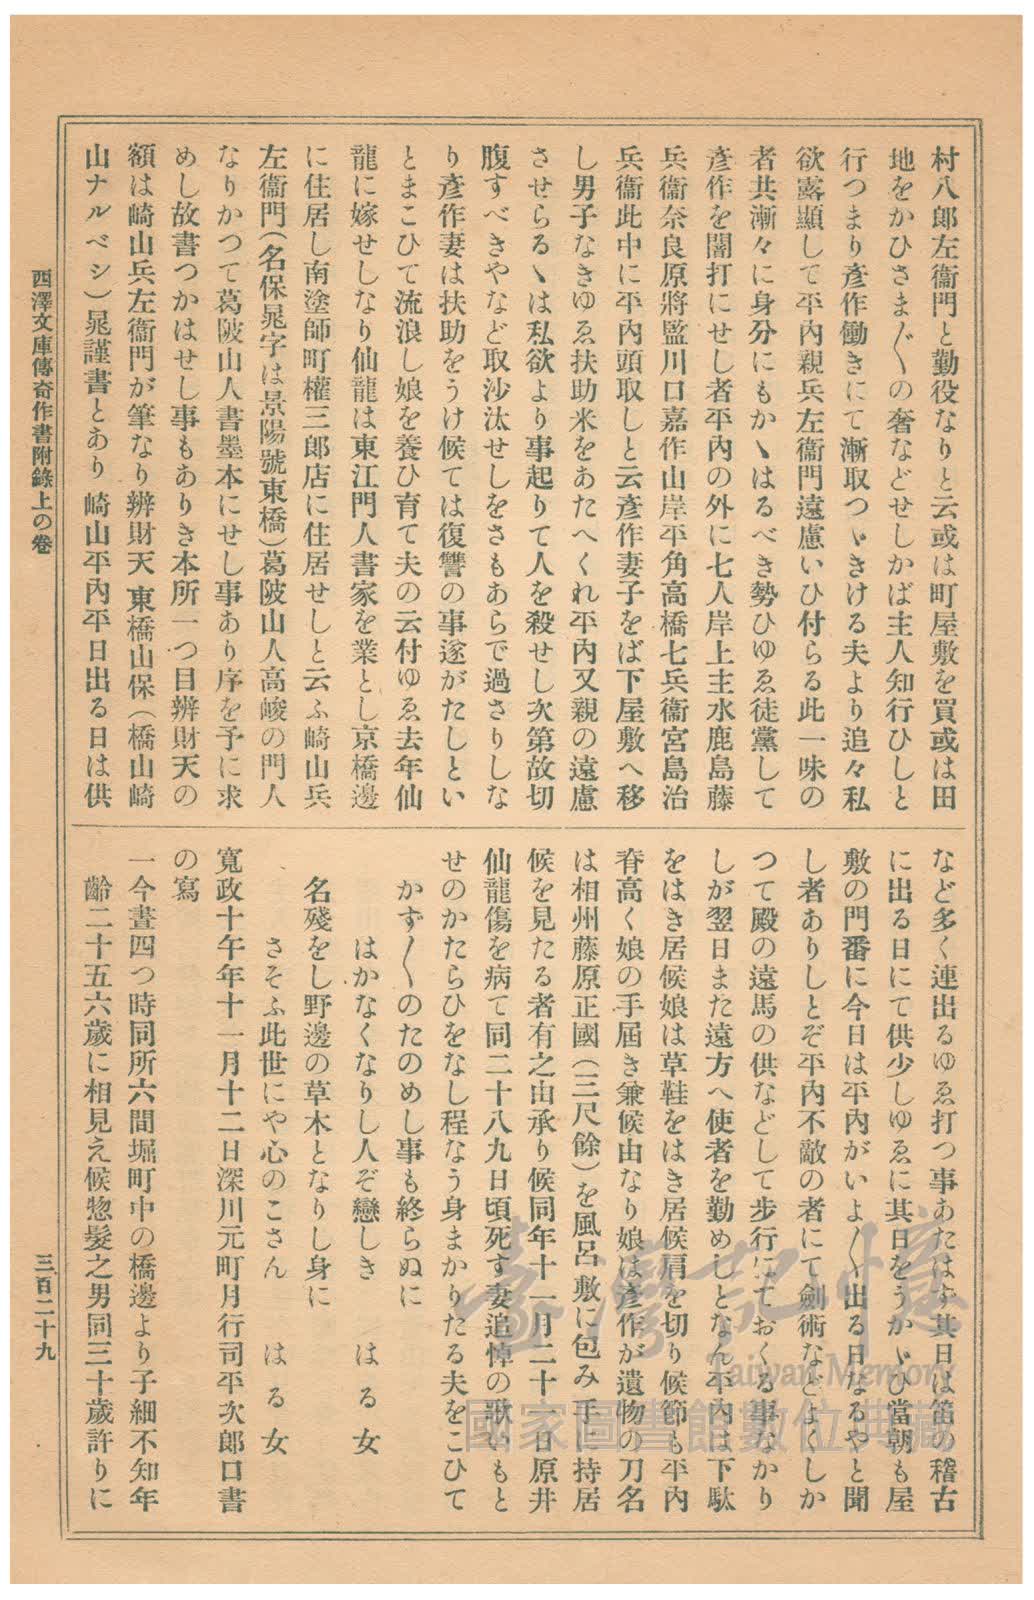 村八郎左衞門と勤役なりと云或は町屋敷を買或は田
地をかひさま〴〵の奢などせしかば主人知行ひしと
行つまり彥作働きにて漸取つゞきける夫より追々私
欲露顯して平內親兵左衞門遠慮いひ付らる此一味の
者共漸々に身分にもかゝはるべき勢ひゆゑ徒黨して
彥作を闇打にせし者平內の外に七人岸上主水鹿島藤
兵衞奈良原將監川口嘉作山岸平角高橋七兵衞宮島治
兵衞此中に平內頭取しと云彥作妻子をば下屋敷へ移
し男子なきゆゑ扶助米をあたへくれ平內又親の遠慮
させらるゝは私欲より事起りて人を殺せし次第故切
腹すべきやなど取沙汰せしをさもあらで過さりしな
り彥作妻は扶助をうけ候ては復讐の事遂がたしとい
とまこひて流浪し娘を養ひ育て夫の云付ゆゑ去年仙
龍に嫁せしなり仙龍は東江門人書家を業とし京橋邊
に住居し南塗師町權三郎店に住居せしと云ふ崎山兵
左衞門(名保晁字は景陽號東橋)葛陂山人高峻の門人
なりかつて葛陂山人書墨本にせし事あり序を予に求
めし故書つかはせし事もありき本所一つ目辨財天の
額は崎山兵左衞門が筆なり辨財天 東橋山保(橋山崎
山ナルベシ)晁謹書とあり崎山平內平日出る日は供
など多く連出るゆゑ打つ事あたはず其日は笛の稽古
に出る日にて供少しゆゑに其日をうかゞひ當朝も屋
敷の門番に今日は平內がいよ〳〵出る日なるやと聞
し者ありしとぞ平內不敵の者にて劍術などよくしか
つて殿の遠馬の供などして步行にておくる事なかり
しが翌日また遠方へ使者を勤めしとなん平內は下駄
をはき居候娘は草鞋をはき居候肩を切り候節も平內
脊高く娘の手屆き兼候由なり娘は彥作が遺物の刀名
は相州藤原正國(三尺餘)を風呂敷に包み手に持居
候を見たる者有之由承り候同年十一月二十一日原井
仙龍傷を病て同二十八九日頃死す妻追悼の歌いもと
せのかたらひをなし程なう身まかりたる夫をこひて
かず〳〵のたのめし事も終らぬに
はかなくなりし人ぞ戀しき はる女
名殘をし野邊の草木となりし身に
さそふ此世にや心のこさん はる女
寬政十午年十一月十二日深川元町月行司平次郎口書
の寫
一今晝四つ時同所六間堀町中の橋邊より子細不知年
齡二十五六歲に相見え候惣髮之男同三十歲許りに
西澤文庫傳奇作書附錄上の卷
三百二十九
臺灣記憶
Taiwan Memory
國家圖書館數位典藏